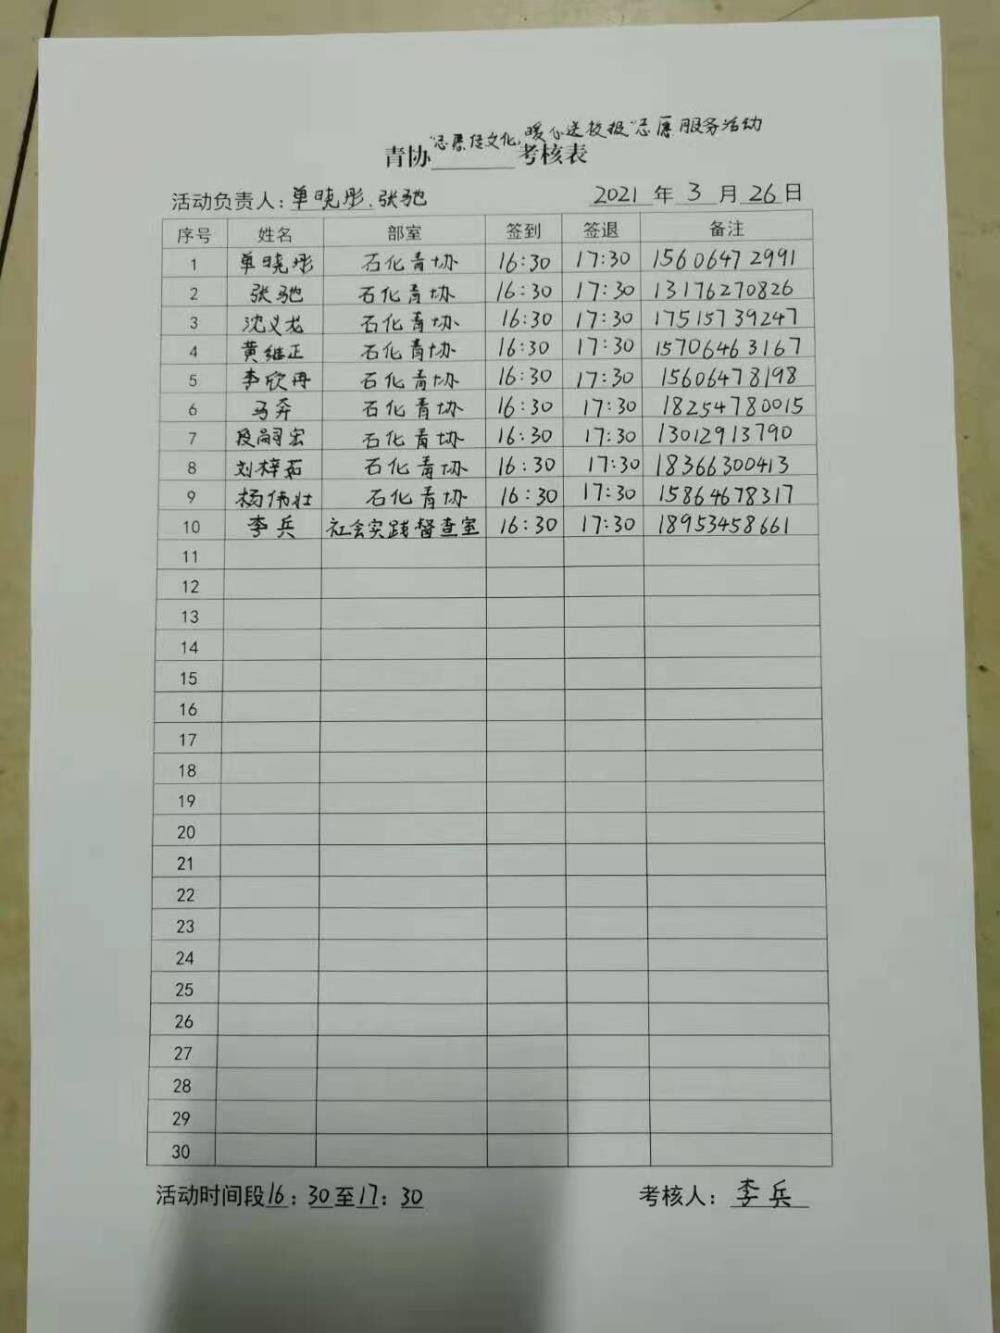 "志愿传文化,暖心送校报"志愿服务活动
青协 考核表
活动负责人:单晓彤.张驰 2021 年 3 月 26 日
序号 姓名 部室 签到 签退 备注
1 单晓彤 石化青协 16:30 17:30 15606472991
2 张驰 石化青协 16:30 17:30 13176270826
3 沈义龙 石化青协 16:30 17:30 17515739247
4 黄继正 石化青协 16:30 17:30 15706463167
5 李欣冉 石化青协 16:30 17:30 15606478198
6 马奔 石化青协 16:30 17:30 18254780015
7 段嗣宏 石化青协 16:30 17:30 13012913790
8 刘梓茹 石化青协 16:30 17:30 18366300413
9 杨伟壮 石化青协 16:30 17:30 15864678317
10 李兵 社会实践督查室 16:30 17:30 18953458661
11
12
13
14
15
16
17
18
19
20
21
22
23
24
25
26
27
28
29
30
活动时间段16:30至17:30 考核人:李兵